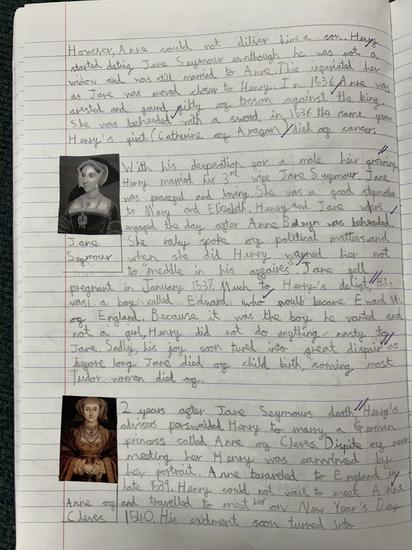 However, Anne could not diliver him a son. Henry
started dating Jane Seymour eventhough he was not a
widow and was still married to Anne. This infuriated her
as Jane was moved closer to Henry. In 1536, Anne was
arested and found guilty of treson against the king.
She was beheaded with a sword in 1536 the same year
Henry's first (Catherine of Aragon) died of cancer.
With his desperation for a male heir growing
Henry married his 3rd wife Jane Seymour. Jane
was peaceful and loving. She was a good stepmother
to Mary and Elizabeth. Henry and Jane were
engaged the day after Anne Boleyn was beheaded.
She raley spoke of political matters and
when she did Henry warned her not
to "meddle in his affaires". Jane fell
pregnant in January 1537. Much to Henry's delight, this
was a boy called Edward who would became Edward VI
of England. Because it was the boy he wanted and
not a girl, Henry did not do anything nasty to
Jane. Sadly, his joy soon turned into great dispair as
before long Jane died of child birth, something most
Tudor women died of.
Jane
Seymour
2 years after Jane Seymours death, Henry's
advisers perswaided Henry to marry a German
princess called Anne of Cleves. Dispite of never
meeting her Henry was convinced by
her portrait. Anne taraveled to England in
late 1539. Henry could not wait to meet Anne
and travelled to meet her on New Year's Day
1540. His exitment soon turned into
Anne of
Cleves